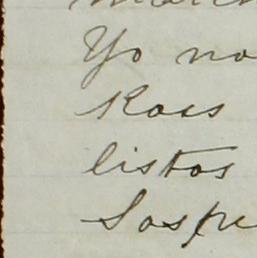 Yo no
Ross
listos
Sospe